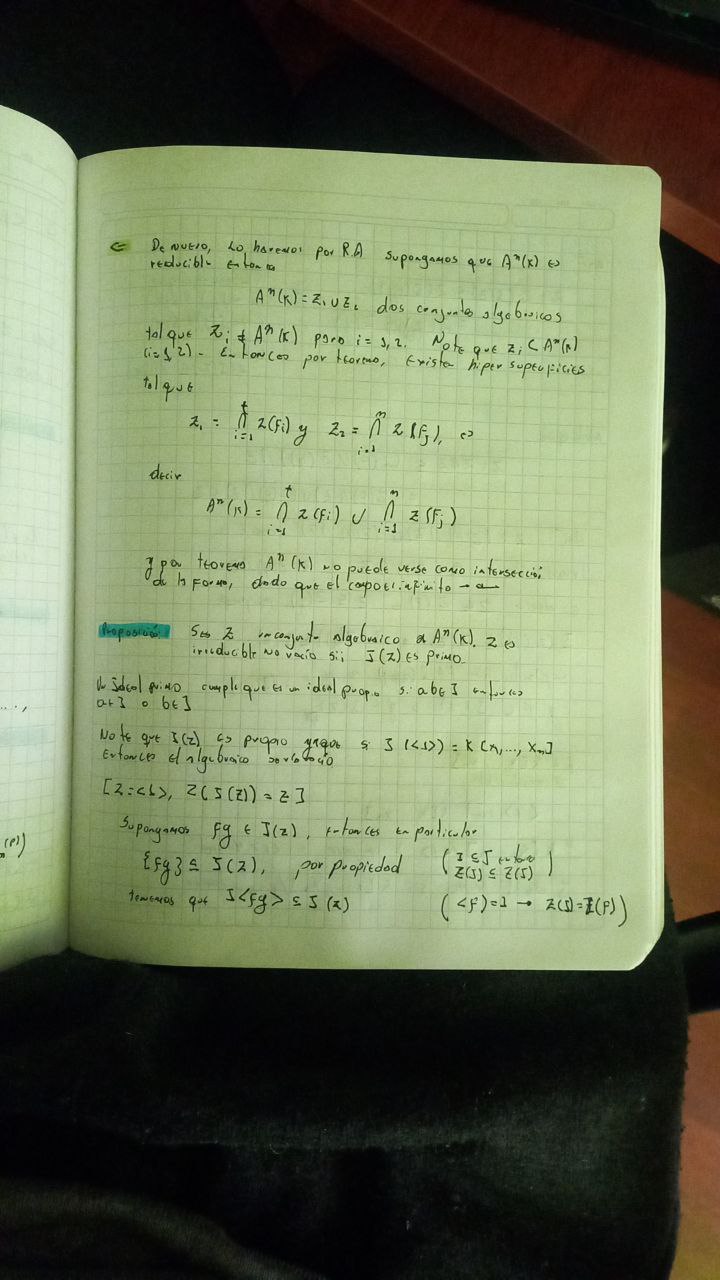 ⇐ De nuevo, Lo haremos por R.A Supongamos que Aⁿ(K) es
reducible entonces
Aⁿ(K) = Z₁ ∪ Z₂ dos conjuntos algebraicos
tal que Zᵢ ≠ Aⁿ(K) para i = 1, 2. Note que Zᵢ ⊂ Aⁿ(K)
(i=1,2). Entonces por teorema, existen hipersuperficies
tal que
Z₁ = ⋂ᵢ₌₁ᵗ Z(fᵢ) y Z₂ = ⋂ᵢ₌₁ᵐ Z(Fⱼ), es
decir
Aⁿ(K) = ⋂ᵢ₌₁ᵗ Z(fᵢ) ∪ ⋂ᵢ₌₁ᵐ Z(Fⱼ)
y por teorema Aⁿ(K) no puede verse como intersección
de la forma, dado que el campo es infinito
Proposición: Sea Z un conjunto algebraico Aⁿ(K). Z es
irreducible No vacío sii J(Z) es primo.
Un Ideal primo cumple que es un ideal propio si ab∈J entonces
a∈J o b∈J
Note que J(Z) es propio yaque si J(<1>) = K[x₁,..., xₙ]
Entonces el algebraico
[Z=<1>, Z(J(Z)) = Z]
Supongamos fg ∈ J(Z), entonces en particular
{fg} ⊆ J(Z), por propiedad (I ⊆ J entonces
Z(J) ⊆ Z(I))
tenemos que J<fg> ⊆ J(Z) (<f>=J → Z(J)=Z(f))